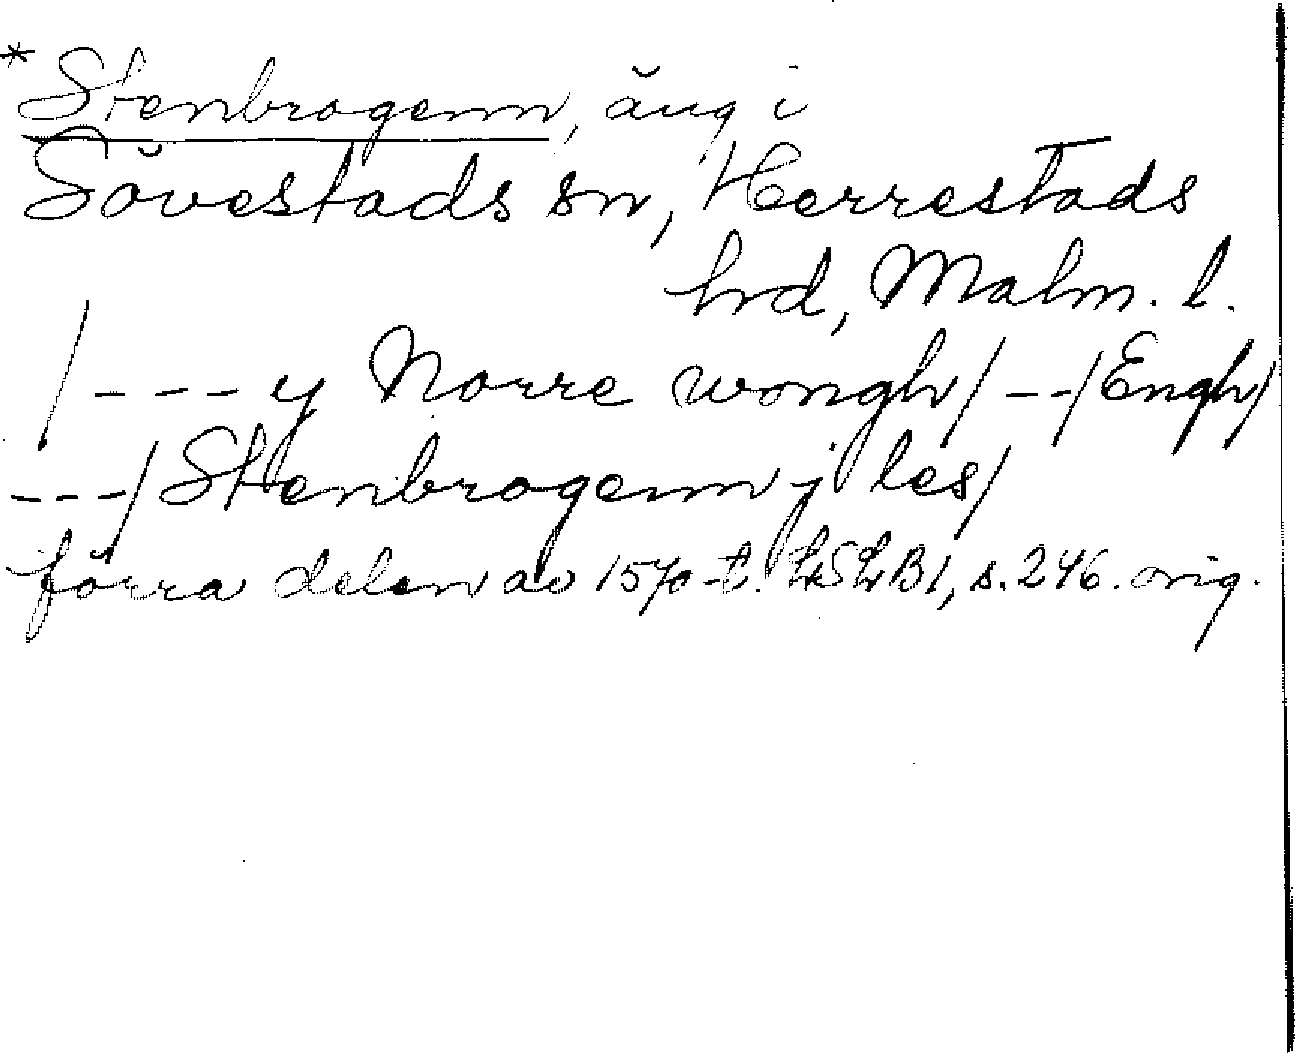 *Stenbrogenn, äng i
Sövestads sn, Herrestads
hrd, Malm. l.
/---y Norre wongh/--/Engh/
---/Stenbrogenn j les/
förra delen av 1570-t. LSLB1, s. 246. orig.